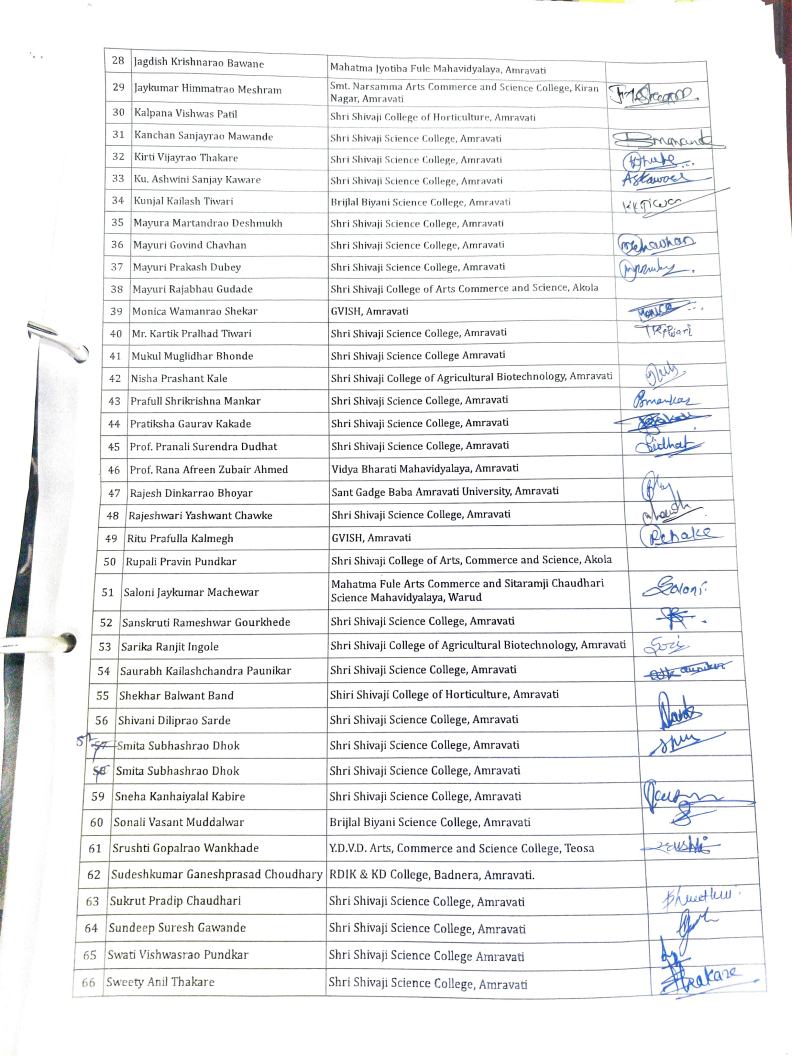 28 Jagdish Krishnarao Bawane Mahatma Jyotiba Fule Mahavidyalaya, Amravati
29 Jaykumar Himmatrao Meshram Smt. Narsamma Arts Commerce and Science College, Kiran
Nagar, Amravati
30 Kalpana Vishwas Patil Shri Shivaji College of Horticulture, Amravati
31 Kanchan Sanjayrao Mawande Shri Shivaji Science College, Amravati
32 Kirti Vijayrao Thakare Shri Shivaji Science College, Amravati
33 Ku. Ashwini Sanjay Kaware Shri Shivaji Science College, Amravati Askaware
34 Kunjal Kailash Tiwari Brijlal Biyani Science College, Amravati
35 Mayura Martandrao Deshmukh Shri Shivaji Science College, Amravati
36 Mayuri Govind Chavhan Shri Shivaji Science College, Amravati
37 Mayuri Prakash Dubey Shri Shivaji Science College, Amravati
38 Mayuri Rajabhau Gudade Shri Shivaji College of Arts Commerce and Science, Akola
39 Monica Wamanrao Shekar GVISH, Amravati
40 Mr. Kartik Pralhad Tiwari Shri Shivaji Science College, Amravati
41 Mukul Muglidhar Bhonde Shri Shivaji Science College, Amravati
42 Nisha Prashant Kale Shri Shivaji College of Agricultural Biotechnology, Amravati
43 Prafull Shrikrishna Mankar Shri Shivaji Science College, Amravati
44 Pratiksha Gaurav Kakade Shri Shivaji Science College, Amravati
45 Prof. Pranali Surendra Dudhat Shri Shivaji Science College, Amravati
46 Prof. Rana Afreen Zubair Ahmed Vidya Bharati Mahavidyalaya, Amravati
47 Rajesh Dinkarrao Bhoyar Sant Gadge Baba Amravati University, Amravati
48 Rajeshwari Yashwant Chawke Shri Shivaji Science College, Amravati
49 Ritu Prafulla Kalmegh GVISH, Amravati
50 Rupali Pravin Pundkar Shri Shivaji College of Arts, Commerce and Science, Akola
51 Saloni Jaykumar Machewar Mahatma Fule Arts Commerce and Sitaramji Chaudhari
Science Mahavidyalaya, Warud Saloni
52 Sanskruti Rameshwar Gourkhede Shri Shivaji Science College, Amravati
53 Sarika Ranjit Ingole Shri Shivaji College of Agricultural Biotechnology, Amravati
54 Saurabh Kailashchandra Paunikar Shri Shivaji Science College, Amravati
55 Shekhar Balwant Band Shiri Shivaji College of Horticulture, Amravati
56 Shivani Diliprao Sarde Shri Shivaji Science College, Amravati
57 Smita Subhashrao Dhok Shri Shivaji Science College, Amravati
58 Smita Subhashrao Dhok Shri Shivaji Science College, Amravati
59 Sneha Kanhaiyalal Kabire Shri Shivaji Science College, Amravati
60 Sonali Vasant Muddalwar Brijlal Biyani Science College, Amravati
61 Srushti Gopalrao Wankhade Y.D.V.D. Arts, Commerce and Science College, Teosa
62 Sudeshkumar Ganeshprasad Choudhary RDIK & KD College, Badnera, Amravati.
63 Sukrut Pradip Chaudhari Shri Shivaji Science College, Amravati
64 Sundeep Suresh Gawande Shri Shivaji Science College, Amravati
65 Swati Vishwasrao Pundkar Shri Shivaji Science College Amravati
66 Sweety Anil Thakare Shri Shivaji Science College, Amravati